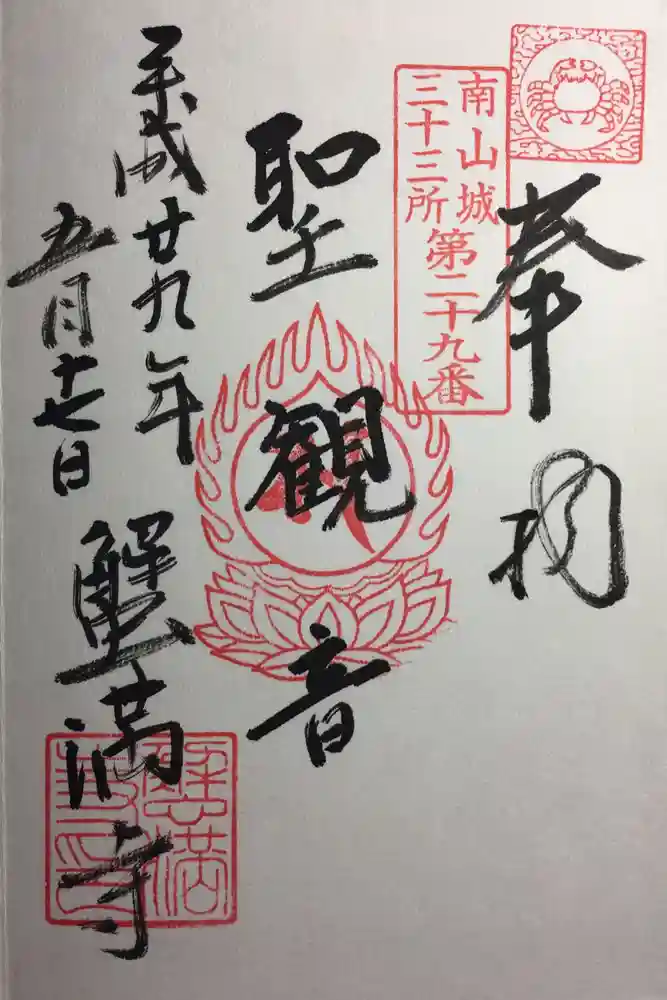 奉拝
南山城
三十三所
第二十九番
聖観音
平成廿九年
五月十七日
蟹満寺